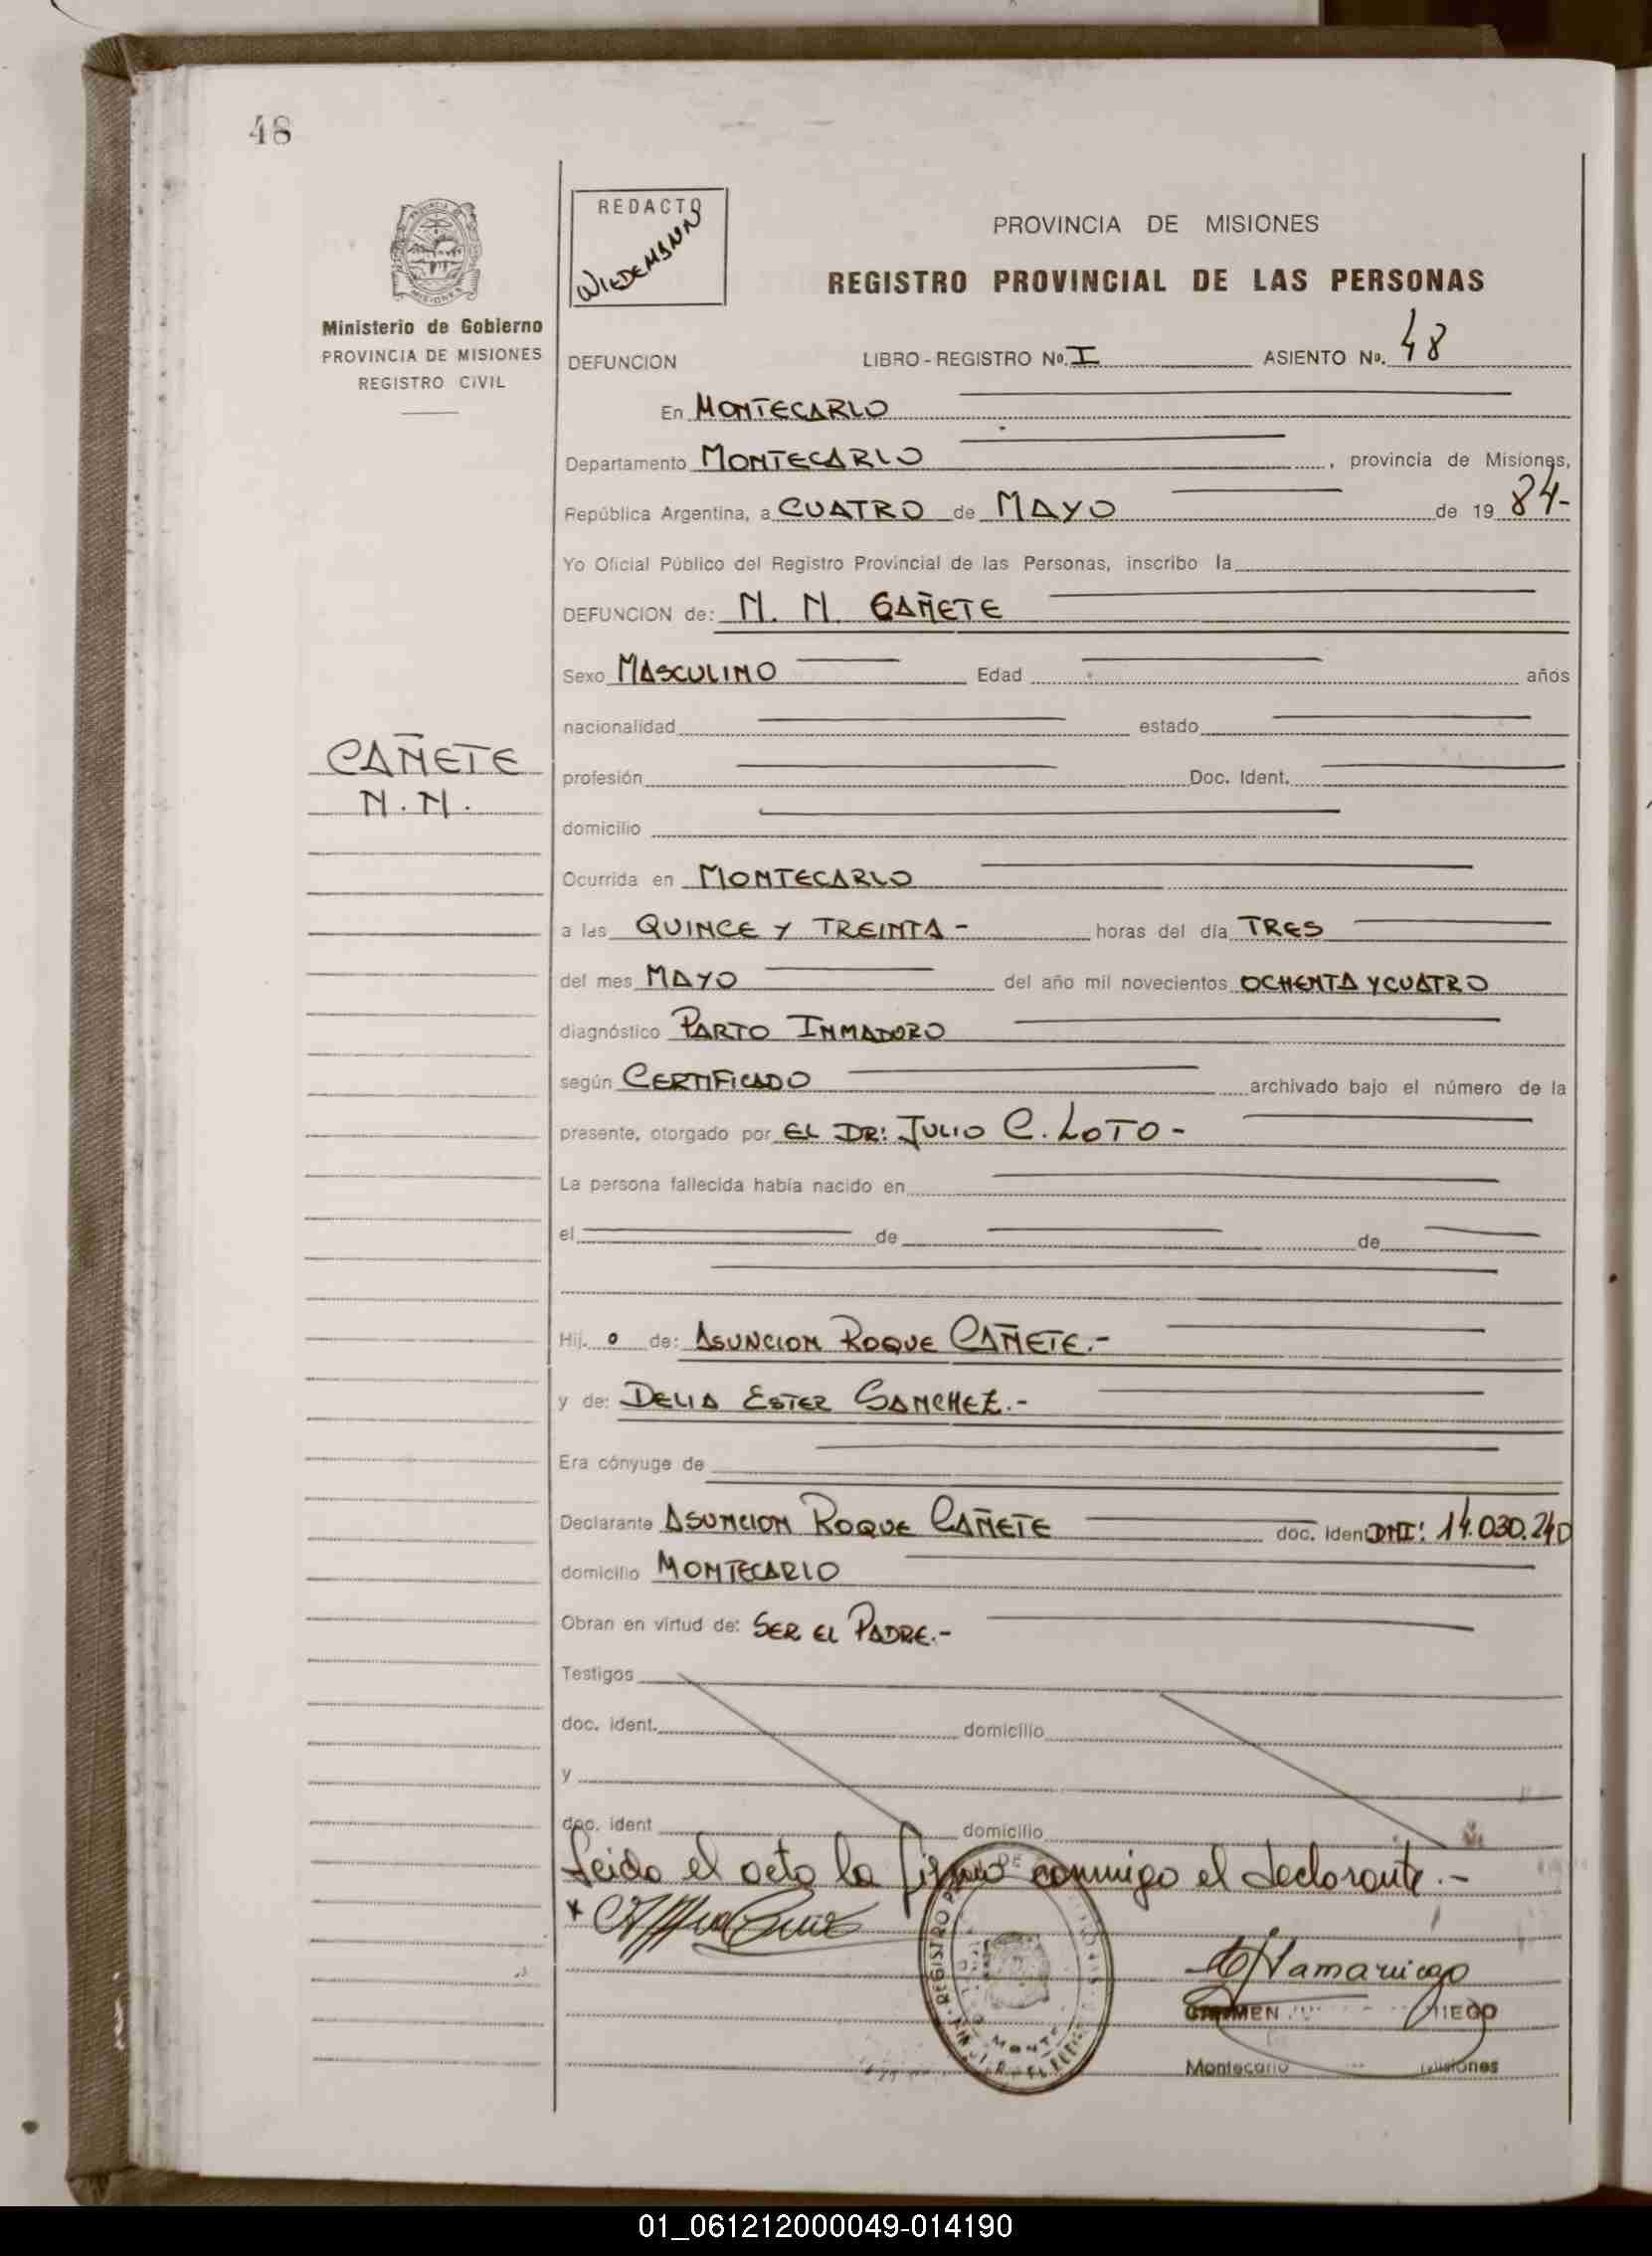 48
REDACTO
WIEDEMANN
PROVINCIA DE MISIONES
REGISTRO PROVINCIAL DE LAS PERSONAS
MISIONES
Ministerio de Gobierno
PROVINCIA DE MISIONES
REGISTRO CIVIL
DEFUNCION LIBRO - REGISTRO No. I ASIENTO No. 48
En MONTECARLO
Departamento MONTECARLO, provincia de Misiones,
República Argentina, a CUATRO de MAYO de 19 84-
Yo Oficial Público del Registro Provincial de las Personas, inscribo la
DEFUNCION de: N. N. CAÑETE
Sexo MASCULINO Edad años
nacionalidad estado
CAÑETE
N. N.
profesión Doc. Ident.
domicilio
Ocurrida en MONTECARLO
a las QUINCE Y TREINTA - horas del día TRES
del mes MAYO del año mil novecientos OCHENTA Y CUATRO
diagnóstico PARTO INMADURO
según CERTIFICADO archivado bajo el número de la
presente, otorgado por EL DR: JULIO C. LOTO -
La persona fallecida había nacido en
el de de
Hij. o de: ASUNCION ROQUE CAÑETE.-
y de: DELIA ESTER SANCHEZ.-
Era cónyuge de
Declarante ASUNCION ROQUE CAÑETE doc. Ident DNI: 14.030.240
domicilio MONTECARLO
Obran en virtud de: SER EL PADRE.-
Testigos
doc. ident. domicilio
y
doc. ident domicilio
Leida el acta la firma conmigo el declarante.-
CARMEN
Montecarlo Misiones
01_061212000049-014190